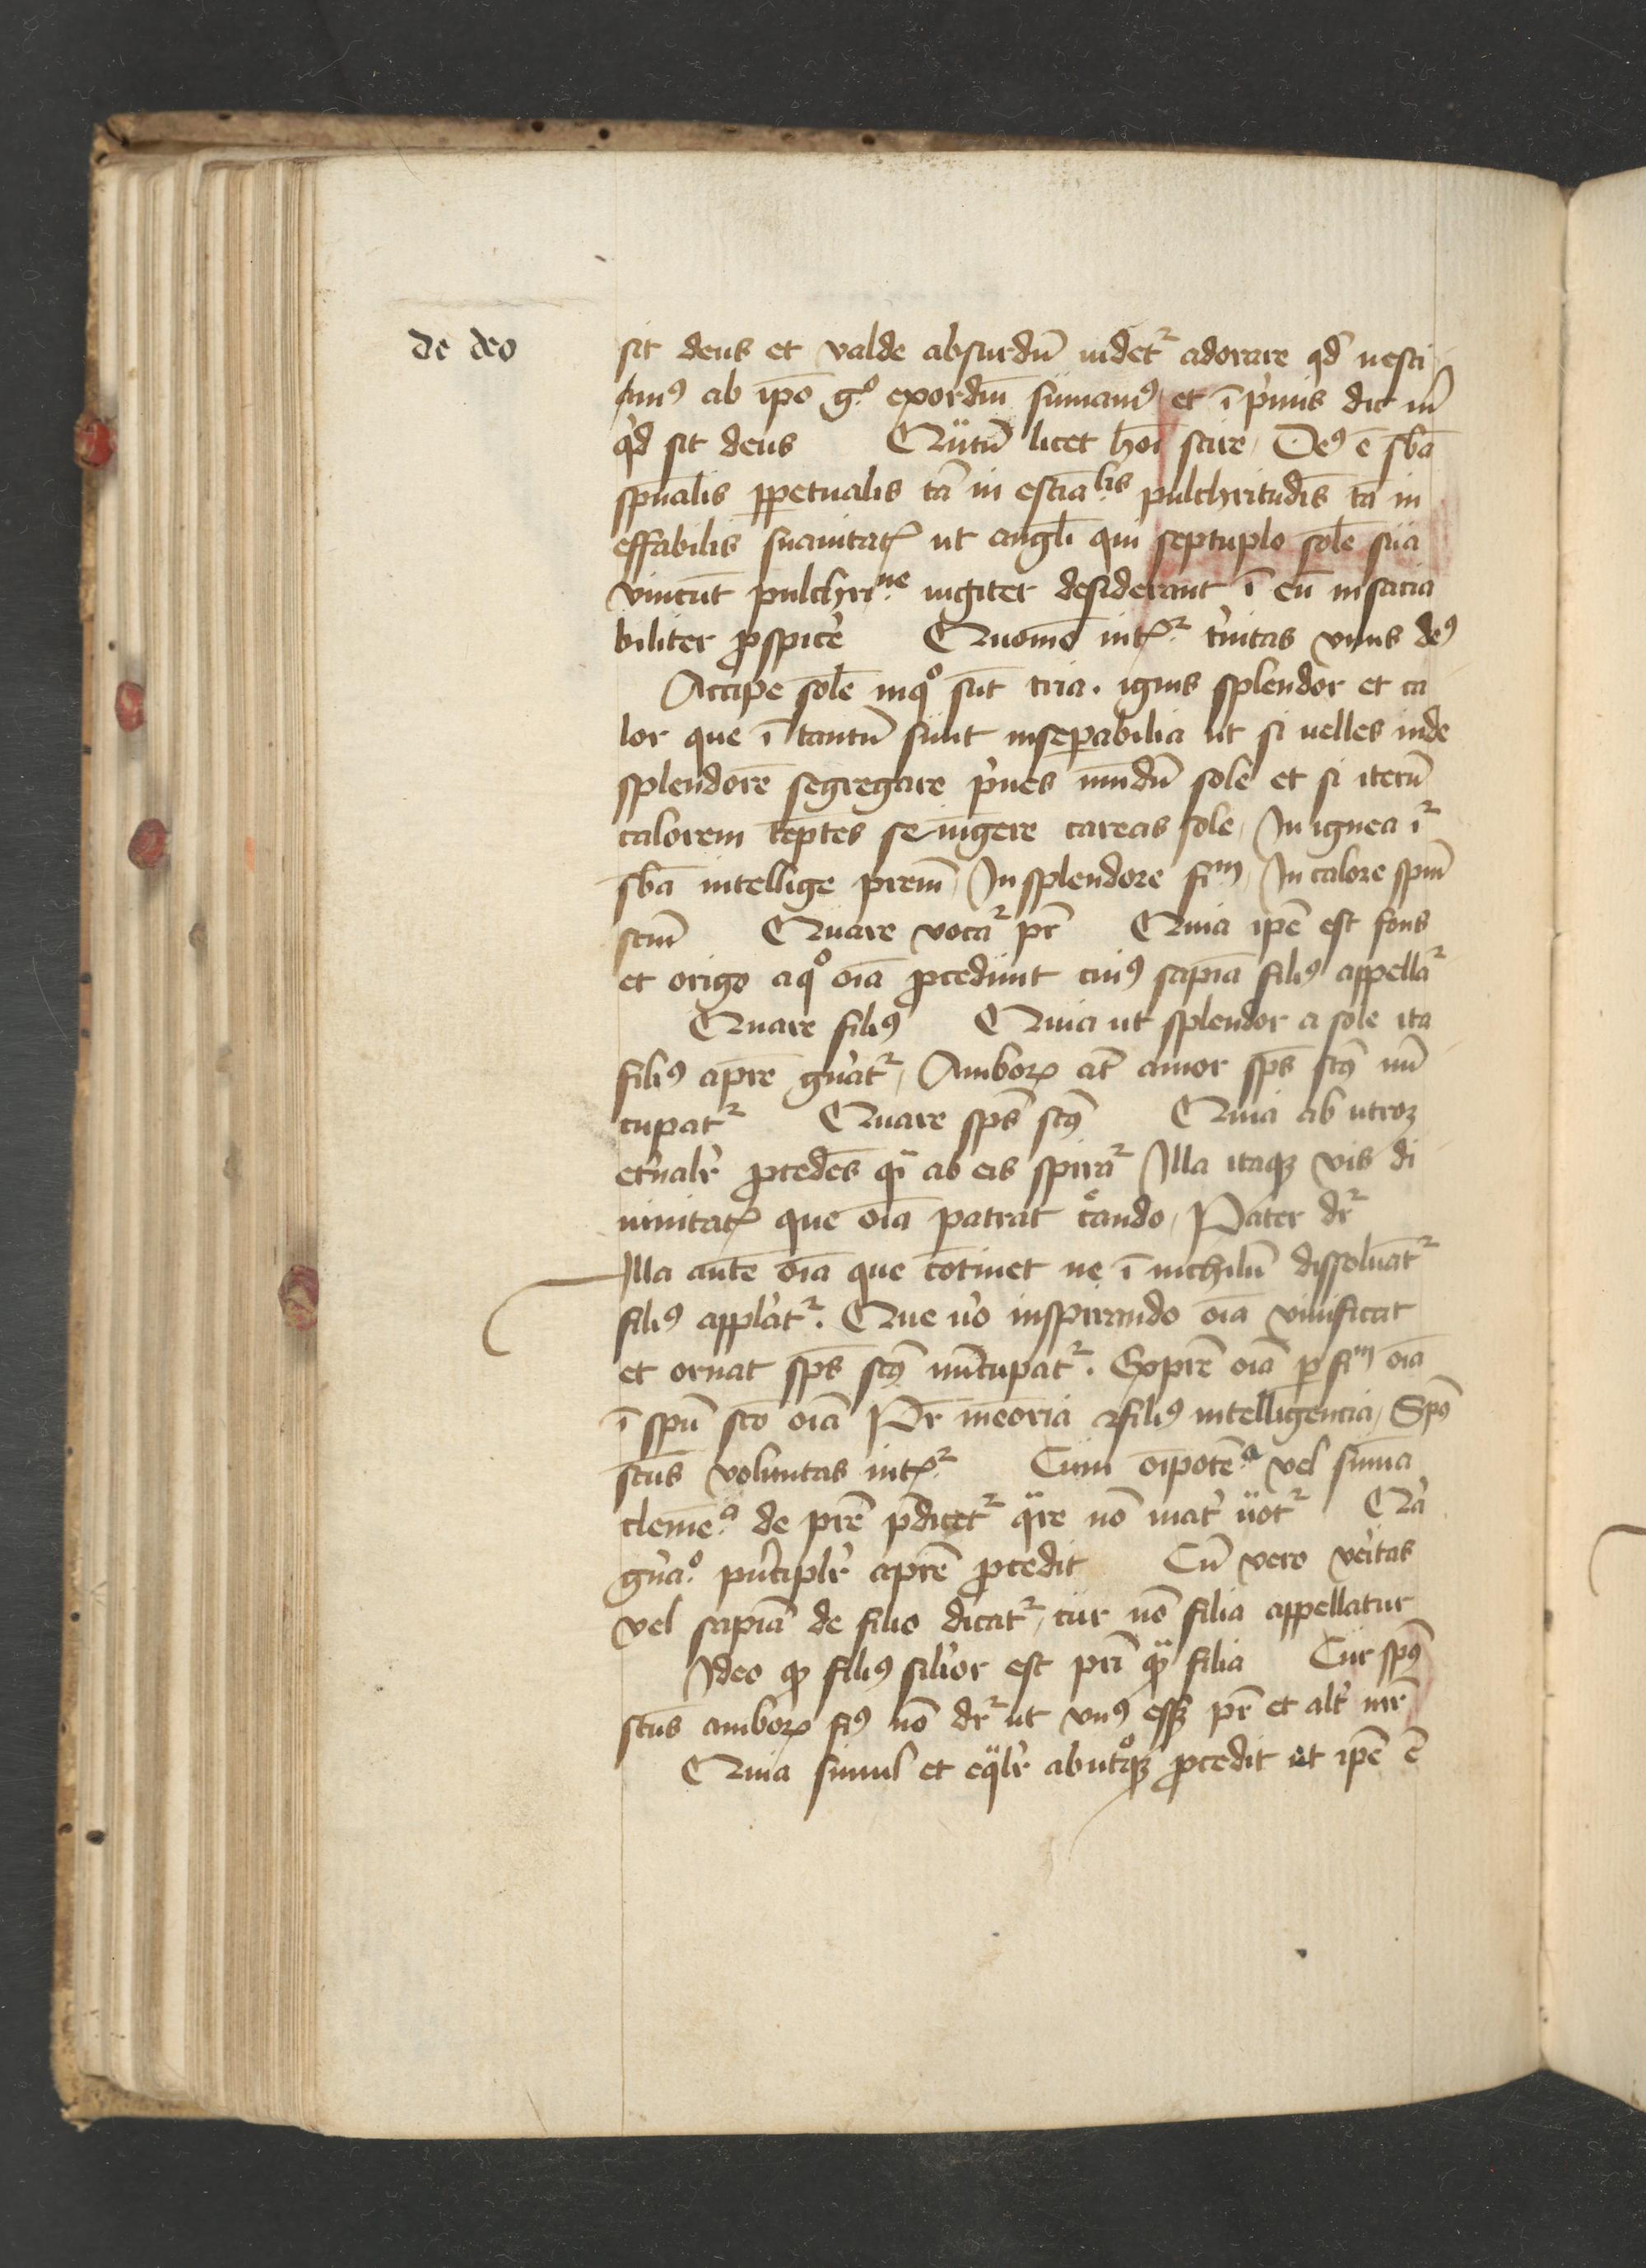 de deo
sit deus et valde absurdū uidet᷑ adorare qd̄ nesci
mꝰ ab ip̄o gͦ exordiū sumamꝰ et ī pͥmis dic m̄
qͥd sit deus Qūtū licet hoī scire Deꝰ ē sb̄a
sp̄ualis ꝑpetualis tā in estīalis pulchritudīs tā in
effabilis suauitatꝭ ut angl̄i qui septuplo solē sua
vincūt pulchriⁿᵉ iugiter desiderant ī eū insacia
biliter ꝓspicē Quomō intꝭ᷑ tͥnitas vnus deꝰ
Accipe solē inqͦ sūt tria . ignis splendor et ca
lor que ī tantū sunt insepabilia ut si uelles inde
splendorē segregare pͥues mūdū sole et si iterū
calorem tēptes seiūgere careas sole In ignea i᷑
sb̄a intellige prem̄ In splendore fiᵐ In calore spm̄
scm̄ Quare voca᷑ pr̄ Quia ip̄e est fons
et origo aqͦ oīa ꝓcedunt cuiꝰ sapīa filiꝰ appella᷑
Quare filiꝰ Quia ut splendor a sole ita
filiꝰ aprē gn̄at᷑ Amboꝝ at̄ amor sp̄s scꝰ nū
cupat᷑ Quare sp̄s scꝰ Quia ab utroꝫ
et̓nalr̄ ꝓcedēs qͣi ab eis spira᷑ Illa itaqꝫ vis di
uinitatꝭ que oīa patrat cͤando Pater dr᷑
Illa autē oīa que cōtinet ne ī nichilū dissoluāt᷑
filiꝰ appl̄at᷑ . Que u̓o inspirando oīa viuificat
et ornat sp̄s scꝰ nūcupat᷑ . Goprē oīa ꝑ fiᵐ oīa
ī spū sco oīa Pr̄ meōria filiꝰ intelligencia Spꝰ
scūs voluntas intꝭ᷑ Cum oīpotēᵃ vel sūma
clemēᵃ de prē p̄dicet᷑ qͣre nō mat̓ uͦot᷑ Qͣa
gn̄aͦ pͥncipl̓r aprē ꝓcedit Cū vero vͤitas
vel sapīa de filio dicat᷑ cur nō filia appellatur
Ideo qꝫ filiꝰ sil̓ior est prī qͣꝫ filia Cur spꝰ
scūs amboꝝ fiꝰ nō dr᷑ ut vnꝰ essꝫ pr̄ et alt̓ mr̄
Quia simul et eqͣlr̄ abutͦqꝫ ꝓcedit et ip̄e ē